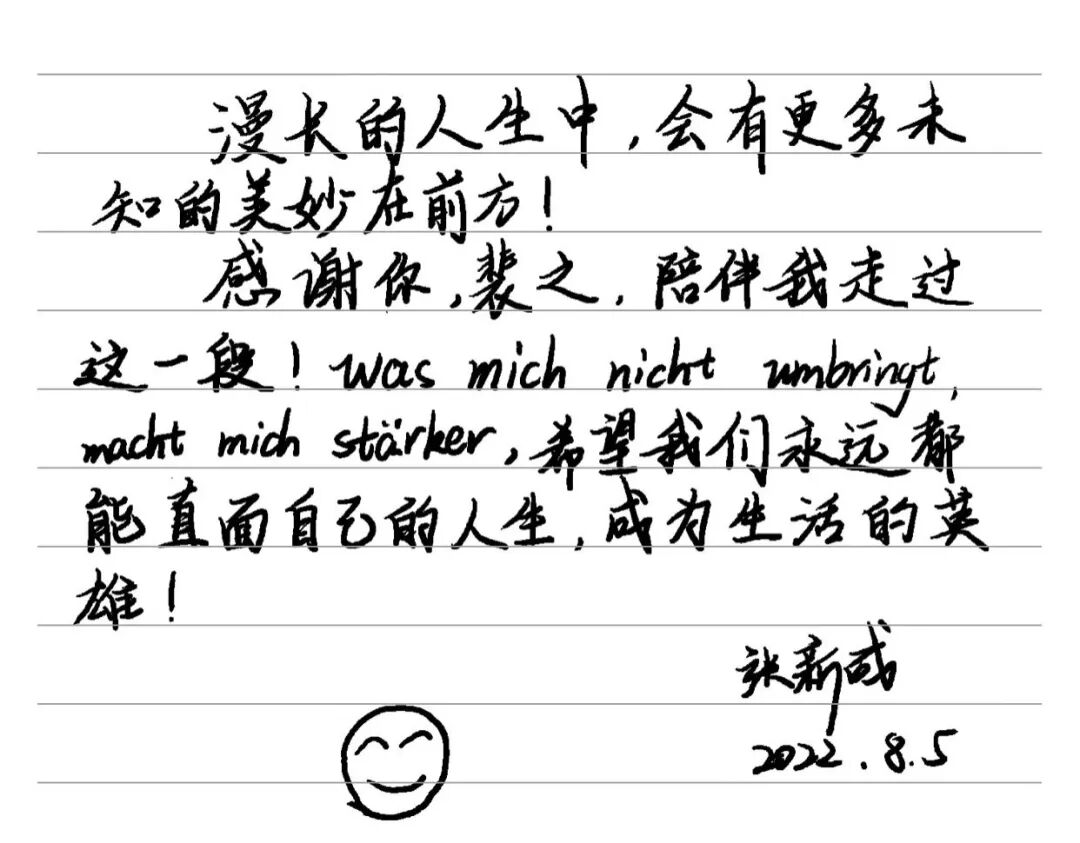 漫长的人生中,会有更多未
知的美妙在前方!
感谢你,裴之,陪伴我走过
这一段! Was mich nicht umbringt,
macht mich stärker,希望我们永远都
能直面自己的人生,成为生活的英
雄!
张新成
2022.8.5